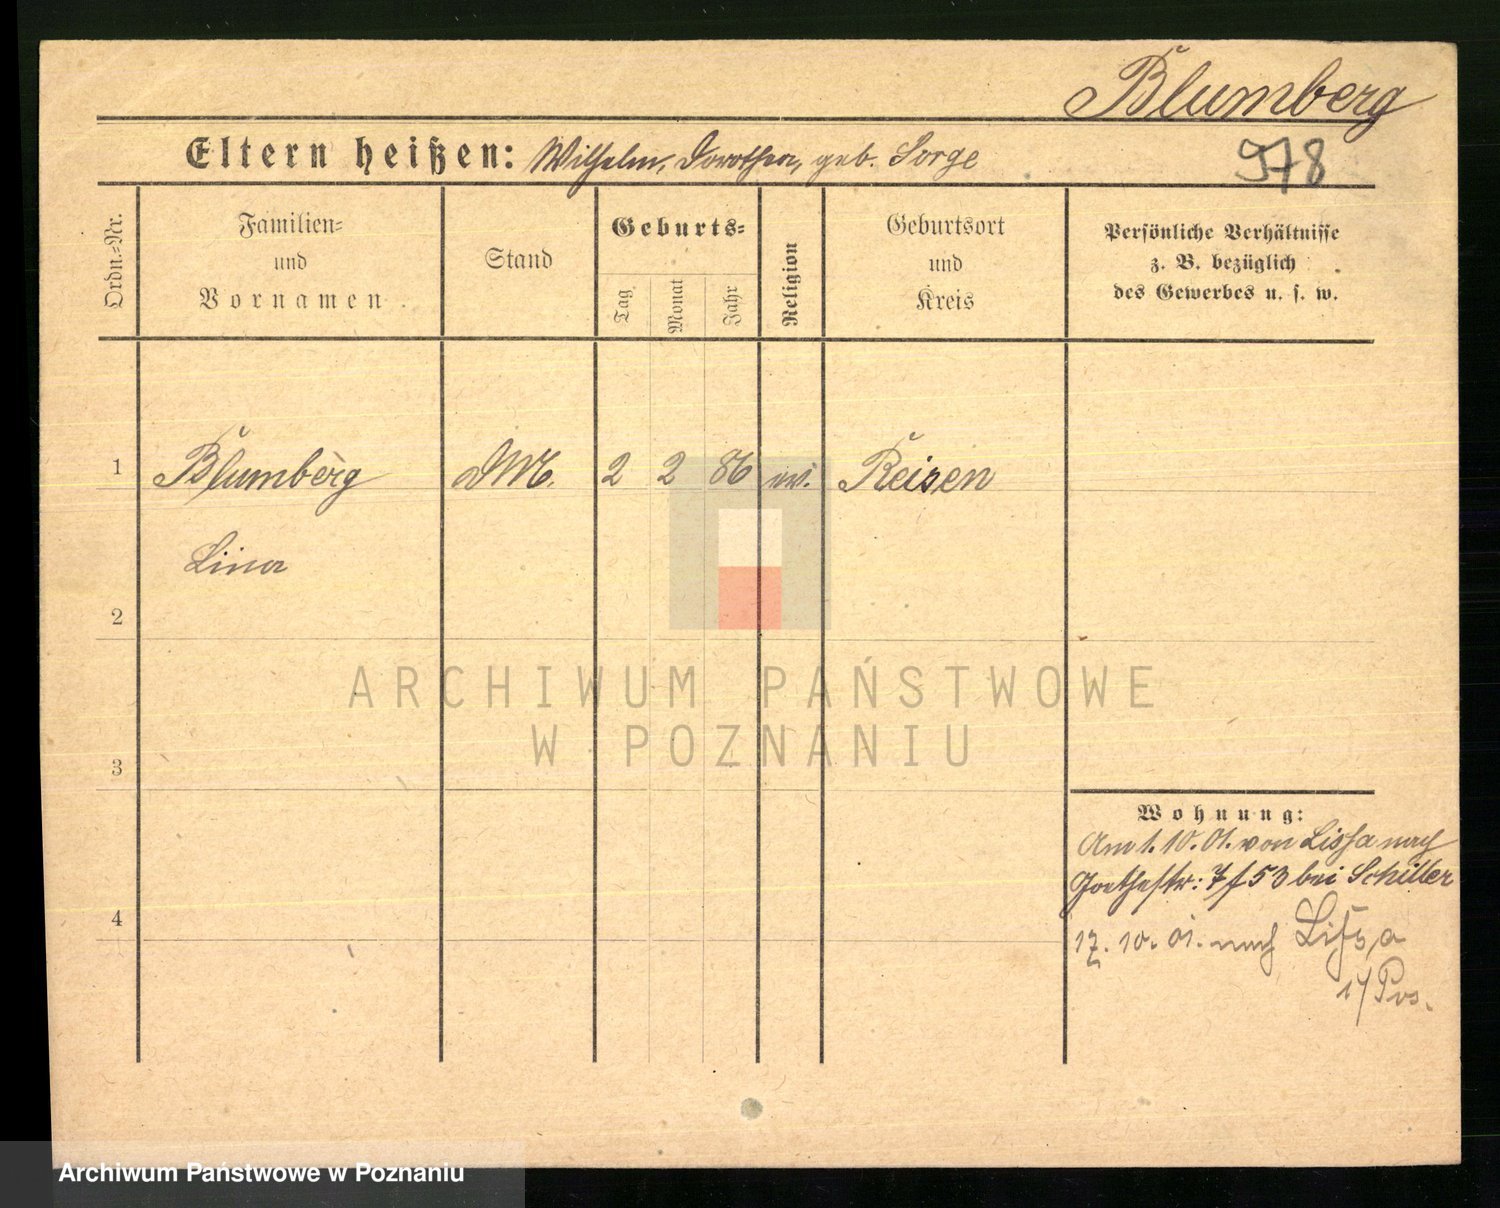 Blumberg
978
Eltern heißen: Wilhelm, Dorothea, geb. Sorge
Ordn.-Nr.
Familien-
und
Vornamen
Stand
Geburts-
Tag
Monat
Jahr
Religion
Geburtsort
und
Kreis
Persönliche Verhältnisse
z. B. bezüglich
des Gewerbes u. s. w.
1
Blumberg
DM.
2
2
86
ev.
Reisen
Lina
2
ARCHIWUM PAŃSTWOWE
W POZNANIU
3
Wohnung:
Am 1. 10. 01. von Lissa nach
Goethestr: 7/53 bei Schiller
4
17. 10. 01. nach Lissa
i/Pos.
Archiwum Państwowe w Poznaniu